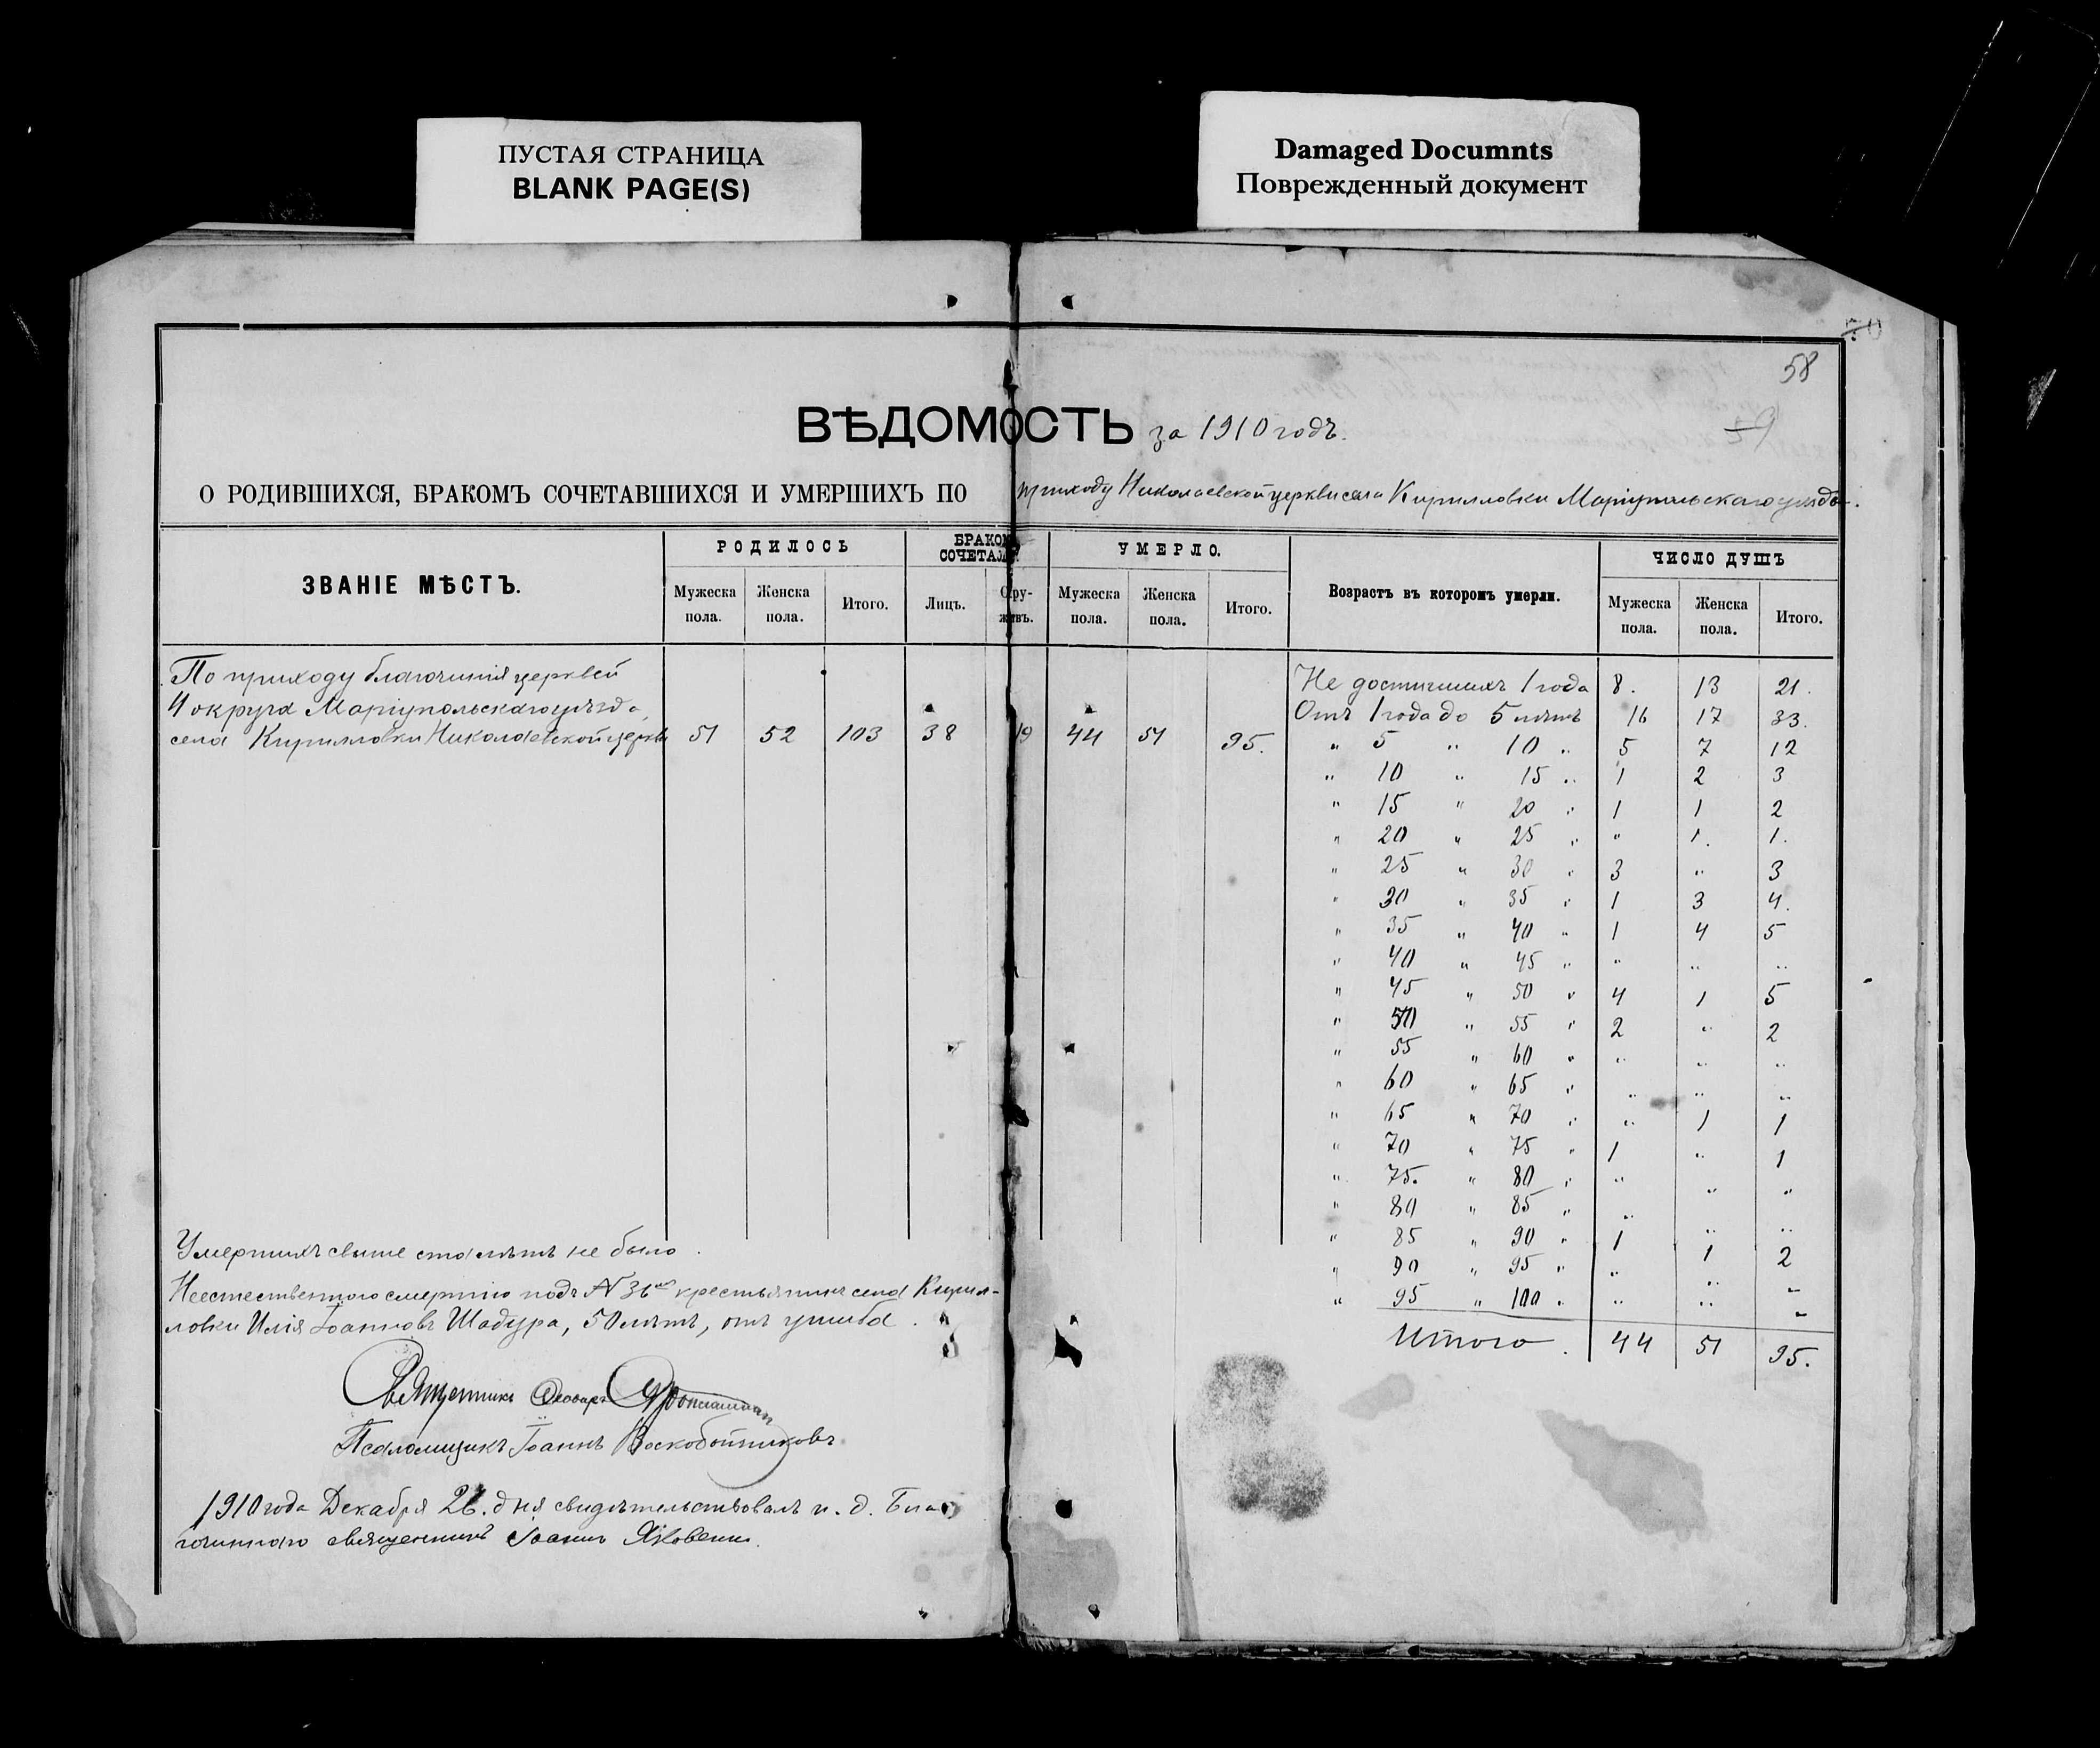 ПУСТАЯ СТРАНИЦА
BLANK PAGE(S)
Damaged Documnts
Поврежденный документ
58
59
ВѢДОМОСТЬ за 1910 годъ.
О РОДИВШИХСЯ, БРАКОМЪ СОЧЕТАВШИХСЯ И УМЕРШИХЪ ПО приходу Николаевской церкви села Кирилловки Маріупольскаго уѣзда.
ЗВАНІЕ МѢСТЪ. РОДИЛОСЬ БРАКОМЪ СОЧЕТАЛ. УМЕРЛО. Возрастъ въ которомъ умерли. ЧИСЛО ДУШЪ
Мужеска пола. Женска пола. Итого. Лицъ. Супружтвъ. Мужеска пола. Женска пола. Итого. Мужеска пола. Женска пола. Итого.
По приходу благочинія церквей
4 округа Маріупольскаго уѣзда,
села Кирилловки Николаевской церкви 51 52 103 38 19 44 51 95.
Не достигшихъ 1 года 8. 13 21.
Отъ 1 года до 5 лѣтъ 16 17 33.
" 5 " 10 " 5 7 12
" 10 " 15 " 1 2 3
" 15 " 20 " 1 1 2
" 20 " 25 " " 1. 1.
" 25 " 30 " 3 " 3
" 30 " 35 " 1 3 4.
" 35 " 40 " 1 4 5
" 40 " 45 " " " "
" 45 " 50 " 4 1 5
" 50 " 55 " 2 " 2
" 55 " 60 " " " "
" 60 " 65 " " " "
" 65 " 70 " " 1 1
" 70 " 75 " 1 " 1
" 75. " 80 " " " "
" 80 " 85 " " " "
" 85 " 90 " 1 1 2
" 90 " 95 " " " "
" 95 " 100 " " " "
Итого. 44 51 95.
Умершихъ свыше ста лѣтъ не было.
Неестественною смертію подъ № 36 крестьянинъ села Кирил-
ловки Илія Іоанновъ Шадура, 50 лѣтъ, отъ ушиба.
Священникъ Ѳеодоръ
Псаломщикъ Іоаннъ Воскобойниковъ
1910 года Декабря 28. дня свидѣтельствовалъ и. д. Бла-
гочиннаго священникъ Іоаннъ Яковенко.